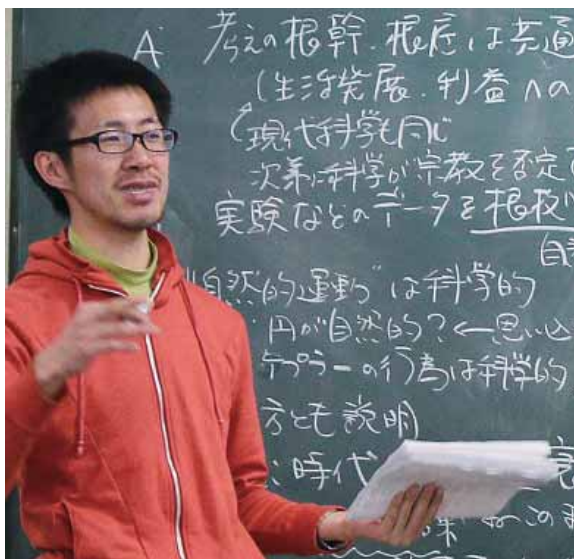 A 考えの根幹、根底は共通
(生活発展、利益への
現代科学も同じ
次第に科学が宗教を否定
実験などのデータを根拠
自然
自然的運動"は科学的
円が自然的?←思い込
ケプラーの行為は科学的
方とも説明
:時代
この